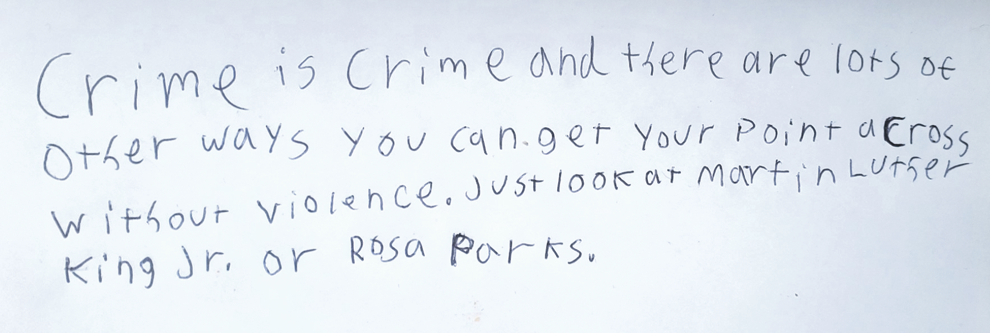 Crime is Crime and there are lots of
Other ways you can.get your Point across
without violence. Just look at martin Luther
King Jr. or Rosa Parks.